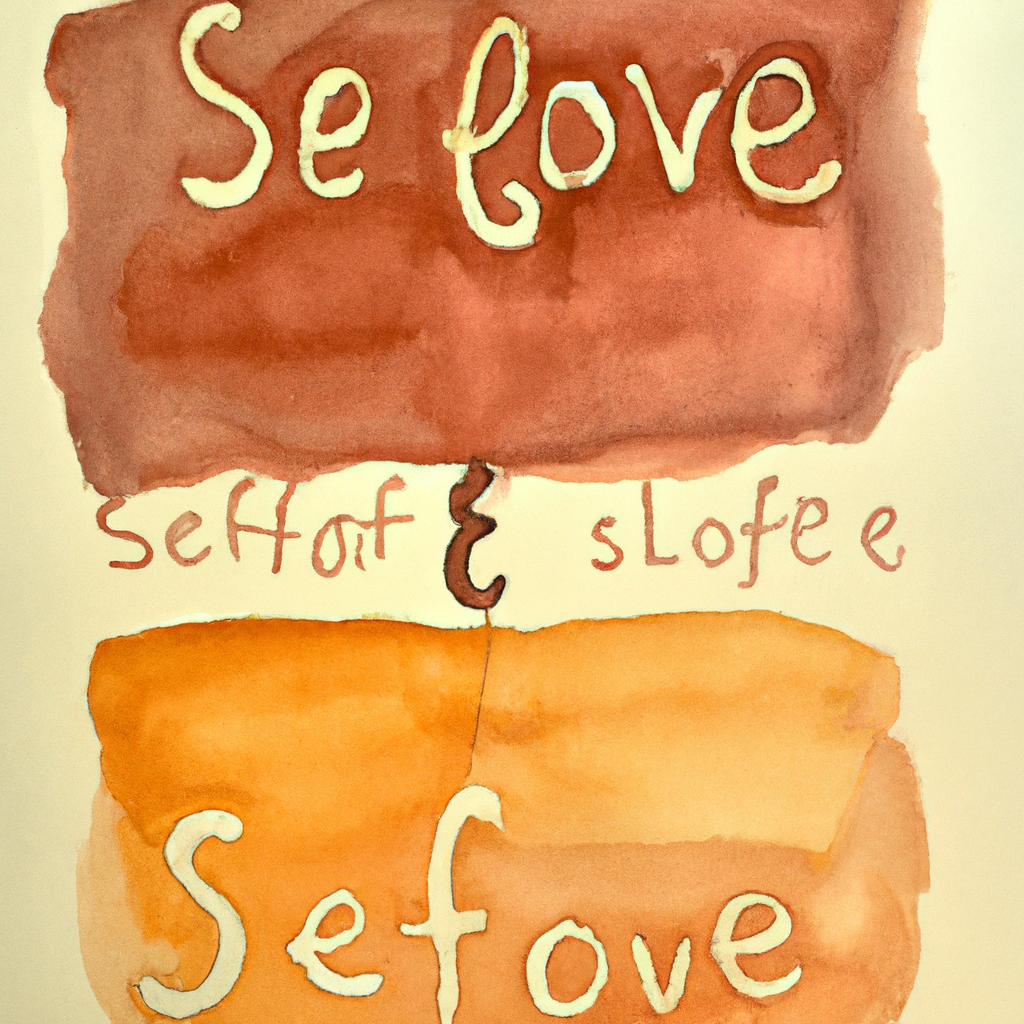 Se love
seHof & sLofe e
Sefove